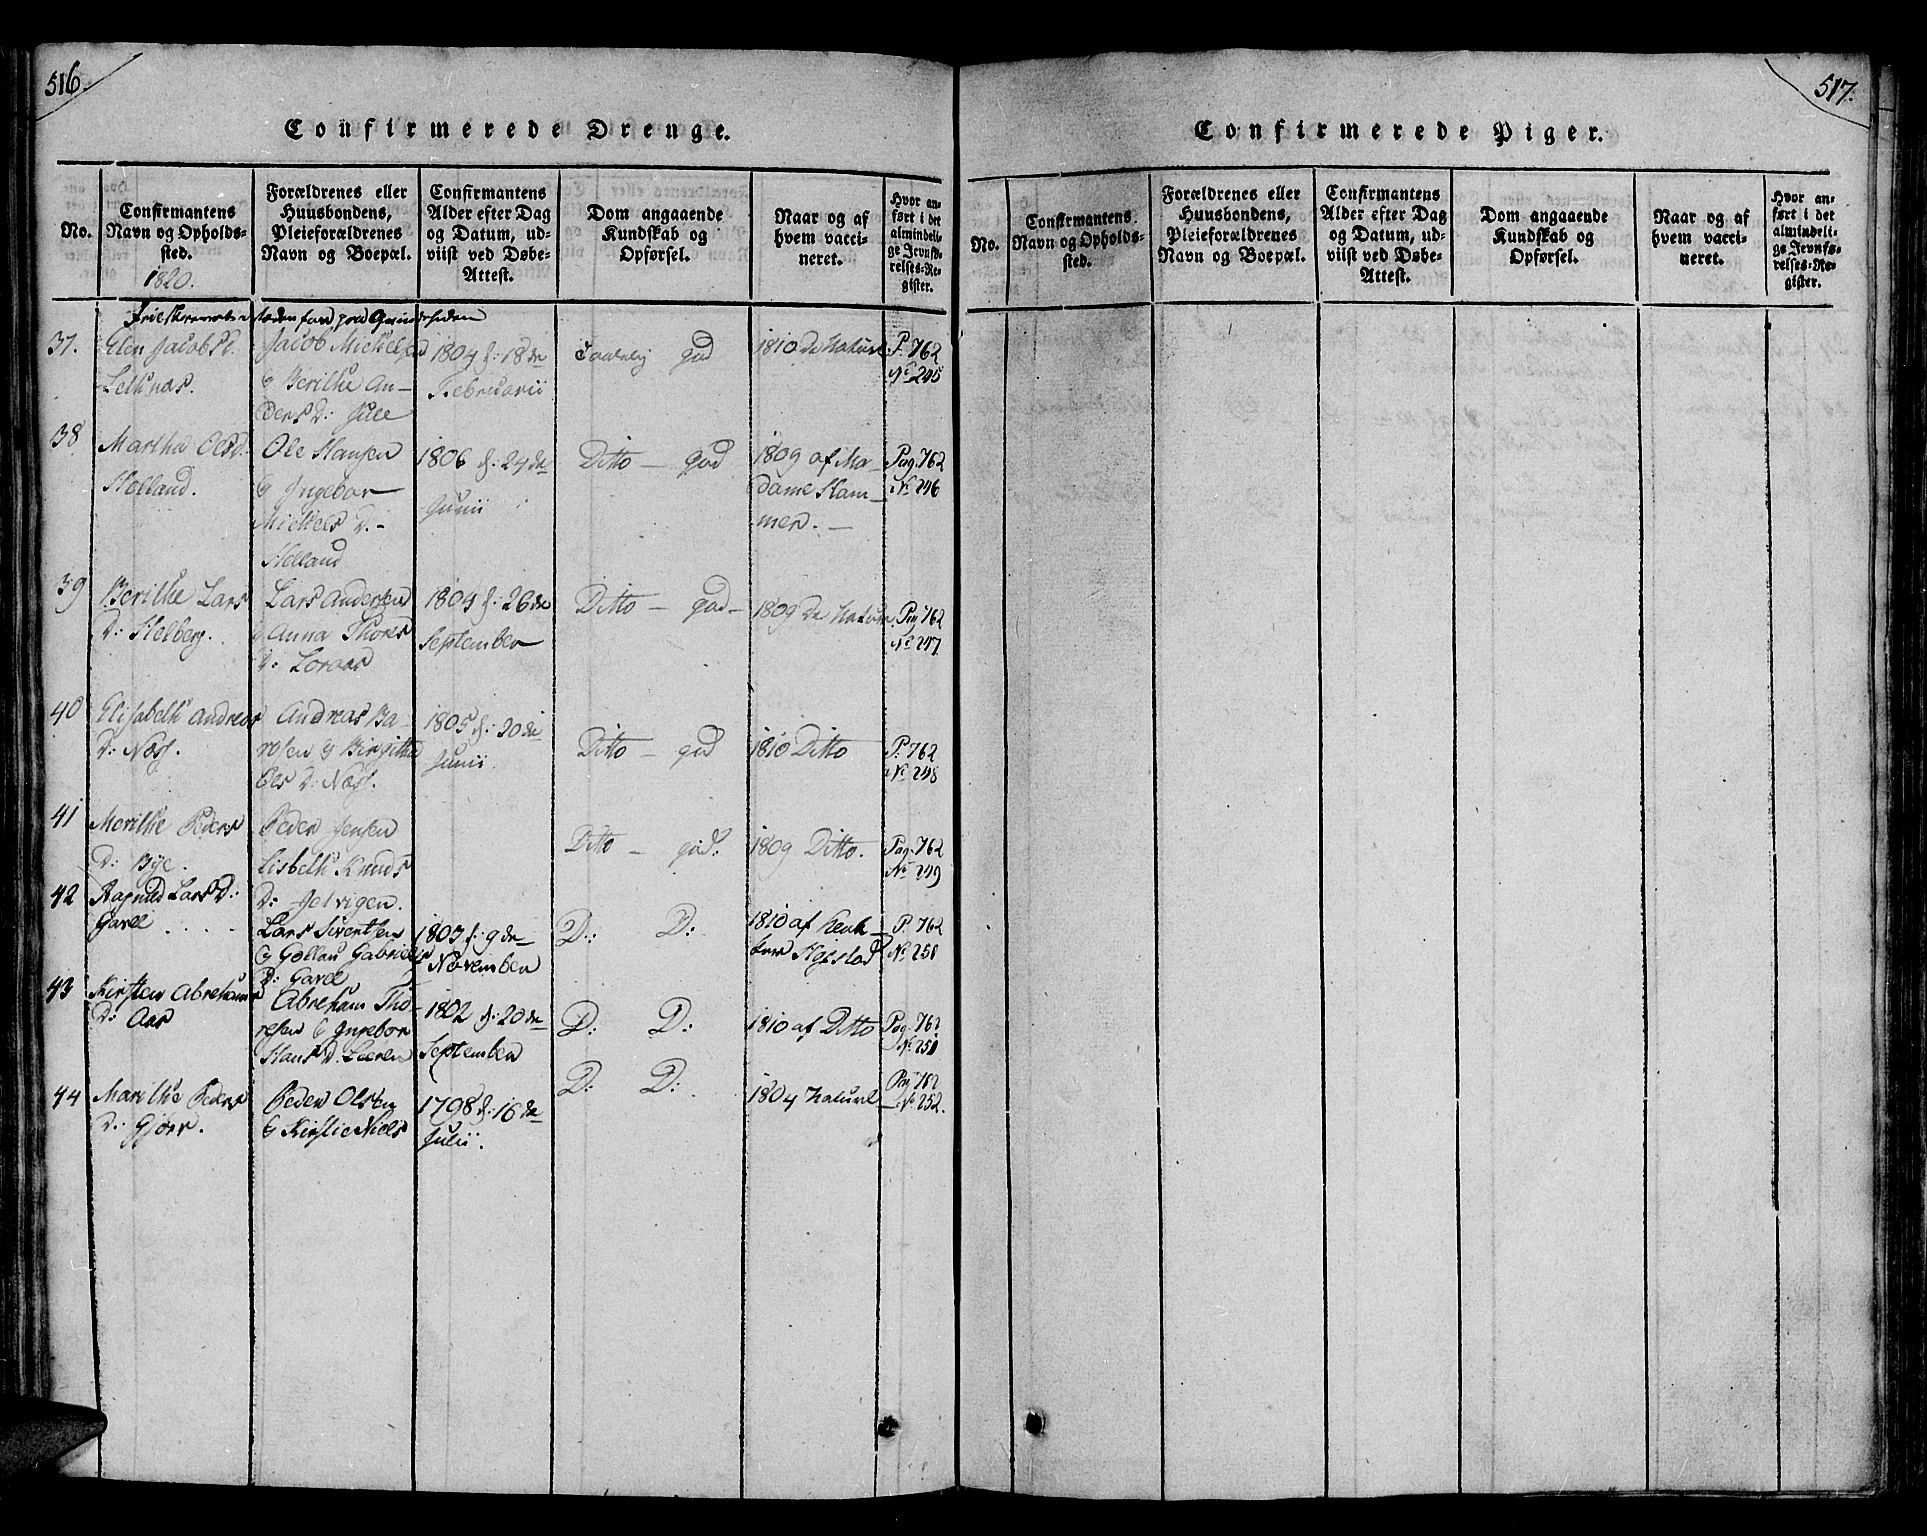 516.
Confirmerede Drenge.
No.
Confirmantens
Navn og Opholds-
sted.
1820.
Forældrenes eller
Huusbondens,
Pleieforældrenes
Navn og Boepæl.
Confirmantens
Alder efter Dag
og Datum, ud-
viist ved Døbe-
Attest.
Dom angaaende
Kundskab og
Opførsel.
Naar og af
hvem vacci-
neret.
Hvor an-
ført i det
almindeli-
ge Jevnfø-
relses-Re-
gister.
37.
Elen Jacobs D.
Lethnæs.
Jacob Michelsen
& Berithe An-
ders D: Jule
1804 d: 18de
Februarii
god
1810 De Naturl
P. 762
No 245
38
Martha Ols D.
Helland.
Ole Hansen
& Ingebor
Michels D. -
Helland
1806 d: 24de
Junii
Ditto - god
1809 af Ma-
dame Ham-
mer. -
Pag. 762
No 246
39
Berithe Lars
D: Helberg.
Lars Andersen
& Anna Thores
D: Loraas
1804 d: 26de
September
Ditto - god -
1809 De Naturl
Pag 762
No 247
40
Elisabeth Andreas
D: Næss.
Andreas Ba-
rosen & Birgitha
Ols D: Næss.
1805 d: 20de
Junii
Ditto - god
1810 Ditto
P. 762
No 248
41
Merithe Peders
D: Bye.
Peder Jensen
Lisbeth Knuds
D: Jelvigen.
Ditto - god:
1809 Ditto.
Pag. 762
No 249
42
Ragnild Lars D:
Garel . . . .
Lars Sivertsen
& Gollau Gabriels
D: Garel
1803 d: 9de
November
D: D:
1810 af
Hegstad
P. 762
No 250
43
Kirsten Abrehams
D: Aas
Abreham Tho-
resen & Ingebor
Hans D. Leeren
1802 d: 20de
September
D: D:
1810 af Ditto
Pag. 762
No 251
44
Marithe Peders
D: Gjørv.
Peder Olsen
& Kirstie Niels
1798 d: 16de
Julii.
D: D:
1804 Naturl
Pag 762
No. 252.
517.
Confirmerede Piger.
No.
Confirmantens
Navn og Opholds-
sted.
Forældrenes eller
Huusbondens,
Pleieforældrenes
Navn og Boepæl.
Confirmantens
Alder efter Dag
og Datum, ud-
viist ved Døbe-
Attest.
Dom angaaende
Kundskab og
Opførsel.
Naar og af
hvem vacci-
neret.
Hvor an-
ført i det
almindeli-
ge Jevnfø-
relses-Re-
gister.